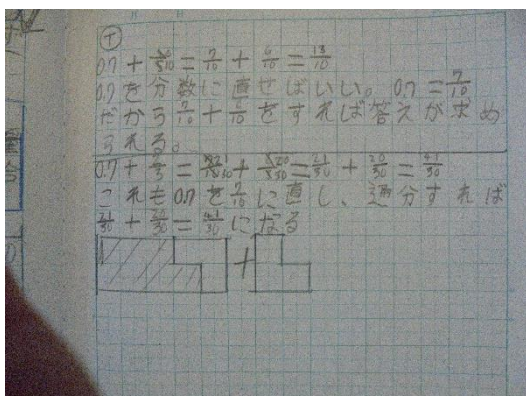 T
0.7 + = 7/10 + 6/10 = 13/10
0.7を分数に直せばいい。0.7 = 7/10
だから 7/10 + 6/10 をすれば答えが求め
られる。
0.7 + 2/3 = + = 21/30 + 20/30 = 41/30
これも0.7を 7/10 に直し、通分すれば
21/30 + 20/30 = 41/30 になる
+